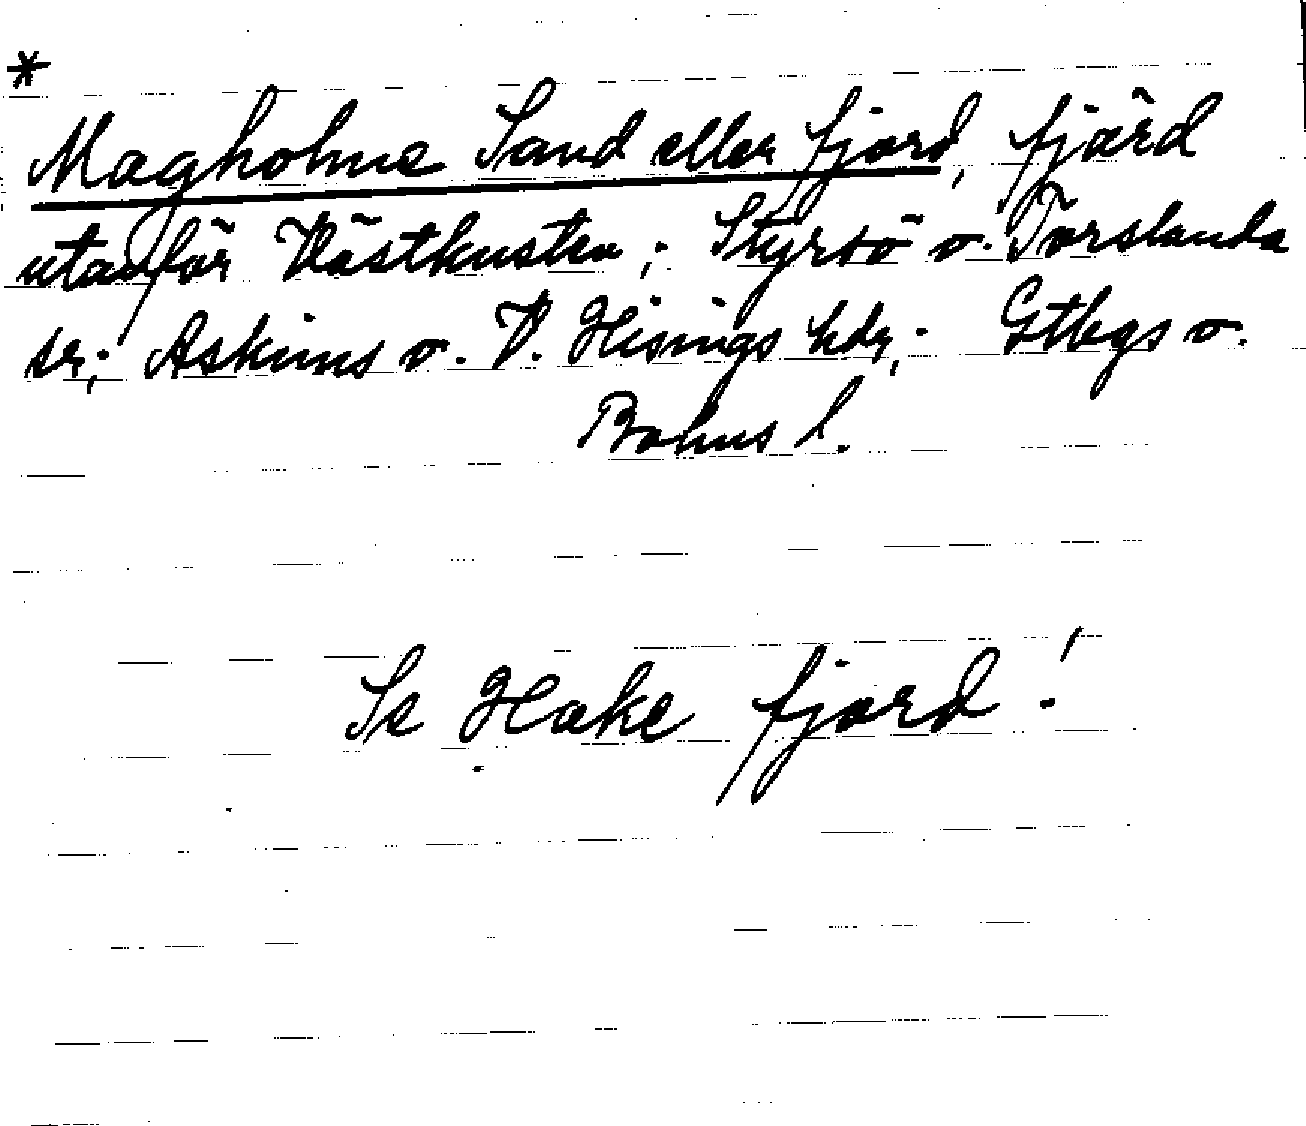 *
Magholme Sand eller fjord, fjärd
utanför Västkusten; Styrsö o. Torslanda
sr; Askims o. V. Hisings hdr; Gtbgs o.
Bohus l.
Se Hake fjord!